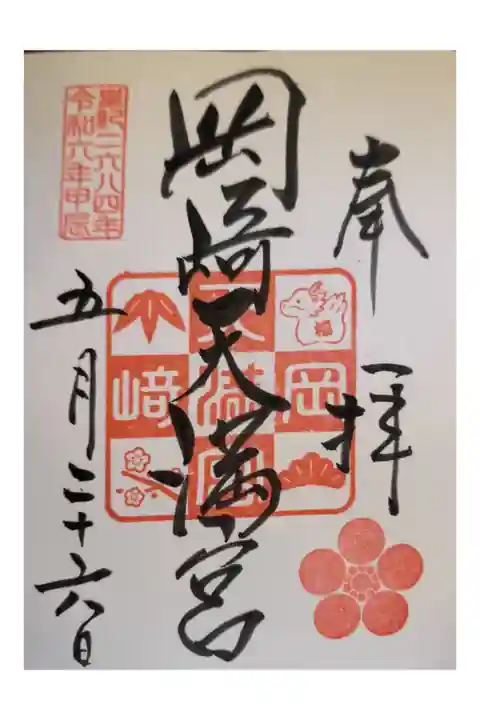 奉拝
岡崎天満宮
岡﨑
天満宮
福
皇紀二六八四年
令和六年甲辰
五月二十六日